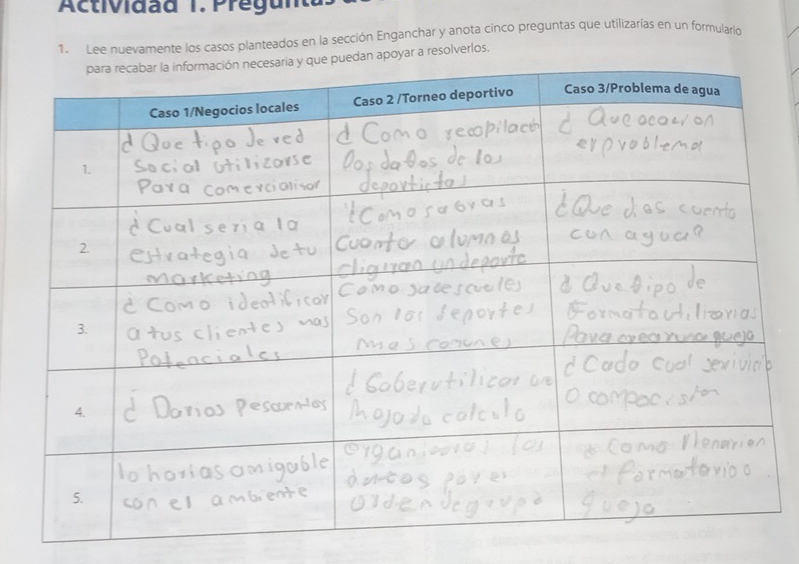 Actividad 1. Preguntas
1. Lee nuevamente los casos planteados en la sección Enganchar y anota cinco preguntas que utilizarías en un formulario
para recabar la información necesaria y que puedan apoyar a resolverlos.
Caso 1/Negocios locales
Caso 2 /Torneo deportivo
Caso 3/Problema de agua
1.
¿ Que tipo de red
Social utilizarse
Para comercialisar
¿ Como recopilacen
los datos de los
deportistas
¿ Que ocacion
er problema
2.
¿ Cual seria la
estrategia de tu
marketing
¿Como sabras
cuantos alumnos
eligiran un deporte
¿Que dias cuenta
con agua?
3.
¿ Como identificar
a tus clientes mas
Potenciales
Como
son los deportes
mas comunes
¿ Que tipo de
Formato utilizarias
Para crear una queja
4.
¿ Darias Descuentos
¿ Saber utilizar
hoja de calculo
¿ Cada cual
o
5.
lo harias amigable
con el ambiente
los
datos por el
orden de grupo
Como
el formato
queja